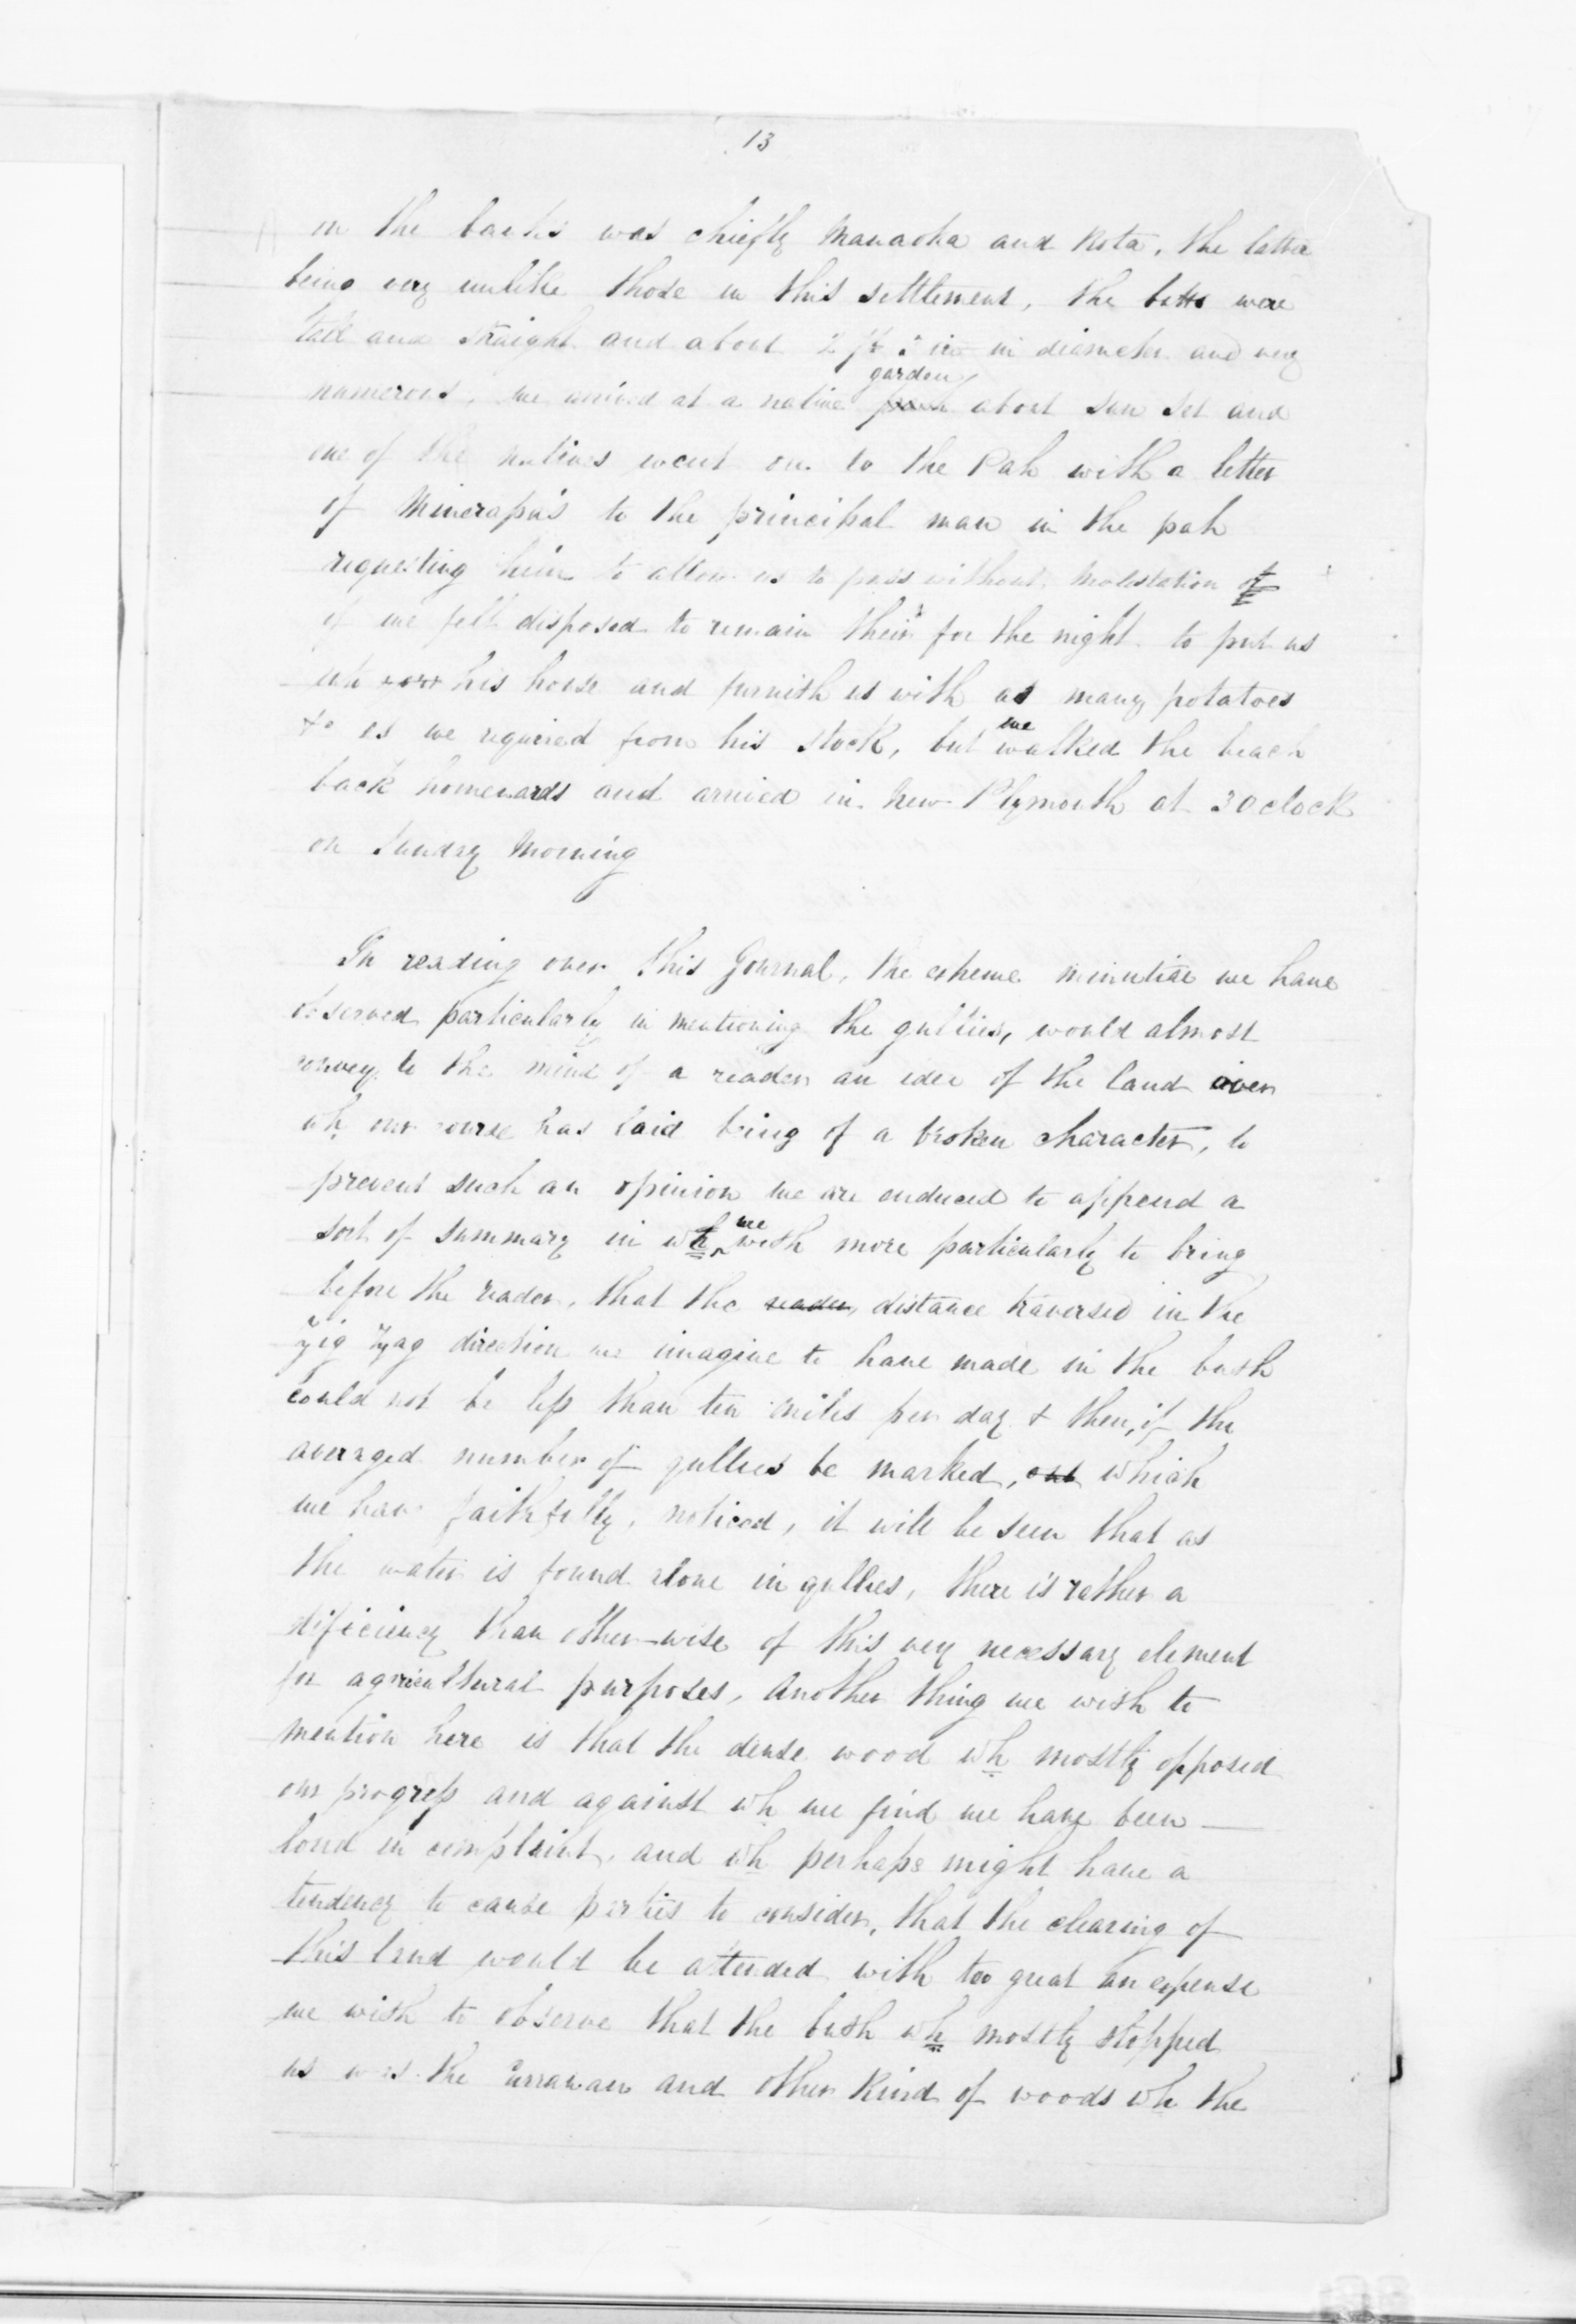 13
on the banks was chiefly Manaoha and Rata, the latter
being very unlike those in this settlement, the butts were
tall and straight and about 2 ft in in diameter and very
numerous, we arrived at a native garden about sun set and
one of the natives went on to the Pah with a letter
of Minerapu's to the principal man in the pah
requesting him to allow us to pass without molestation &
if we felt disposed to remain their for the night to put us
into his house and furnish us with as many potatoes
&c as we required from his stock, but we walked the beach
back homewards and arrived in New Plymouth at 3 oclock
on Sunday Morning
In reading over this Journal, the extreme minutiae we have
observed particularly in mentioning the gullies, would almost
convey to the mind of a reader an idea of the land over
wh our course has laid being of a broken character, to
prevent such an opinion we are enduced to append a
sort of summary in wh we wish more particularly to bring
before the reader, that the reader, distance traversed in the
Zig Zag direction we imagine to have made in the bush
could not be less than ten miles per day & then, if the
averaged number of gullies be marked, out which
we have faithfully, noticed, it will be seen that as
the water is found alone in gullies, there is rather a
dificiency than other-wise of this very necessary element
for agricultural purposes, Another thing we wish to
mention here is that the dense wood wh mostly opposed
our progress and against wh we find we have been
loud in complaint, and wh perhaps might have a
tendency to cause parties to consider, that the clearing of
this land would be attended with too great an expense
we wish to observe that the bush wh mostly stopped
us was the and other Kind of woods wh the